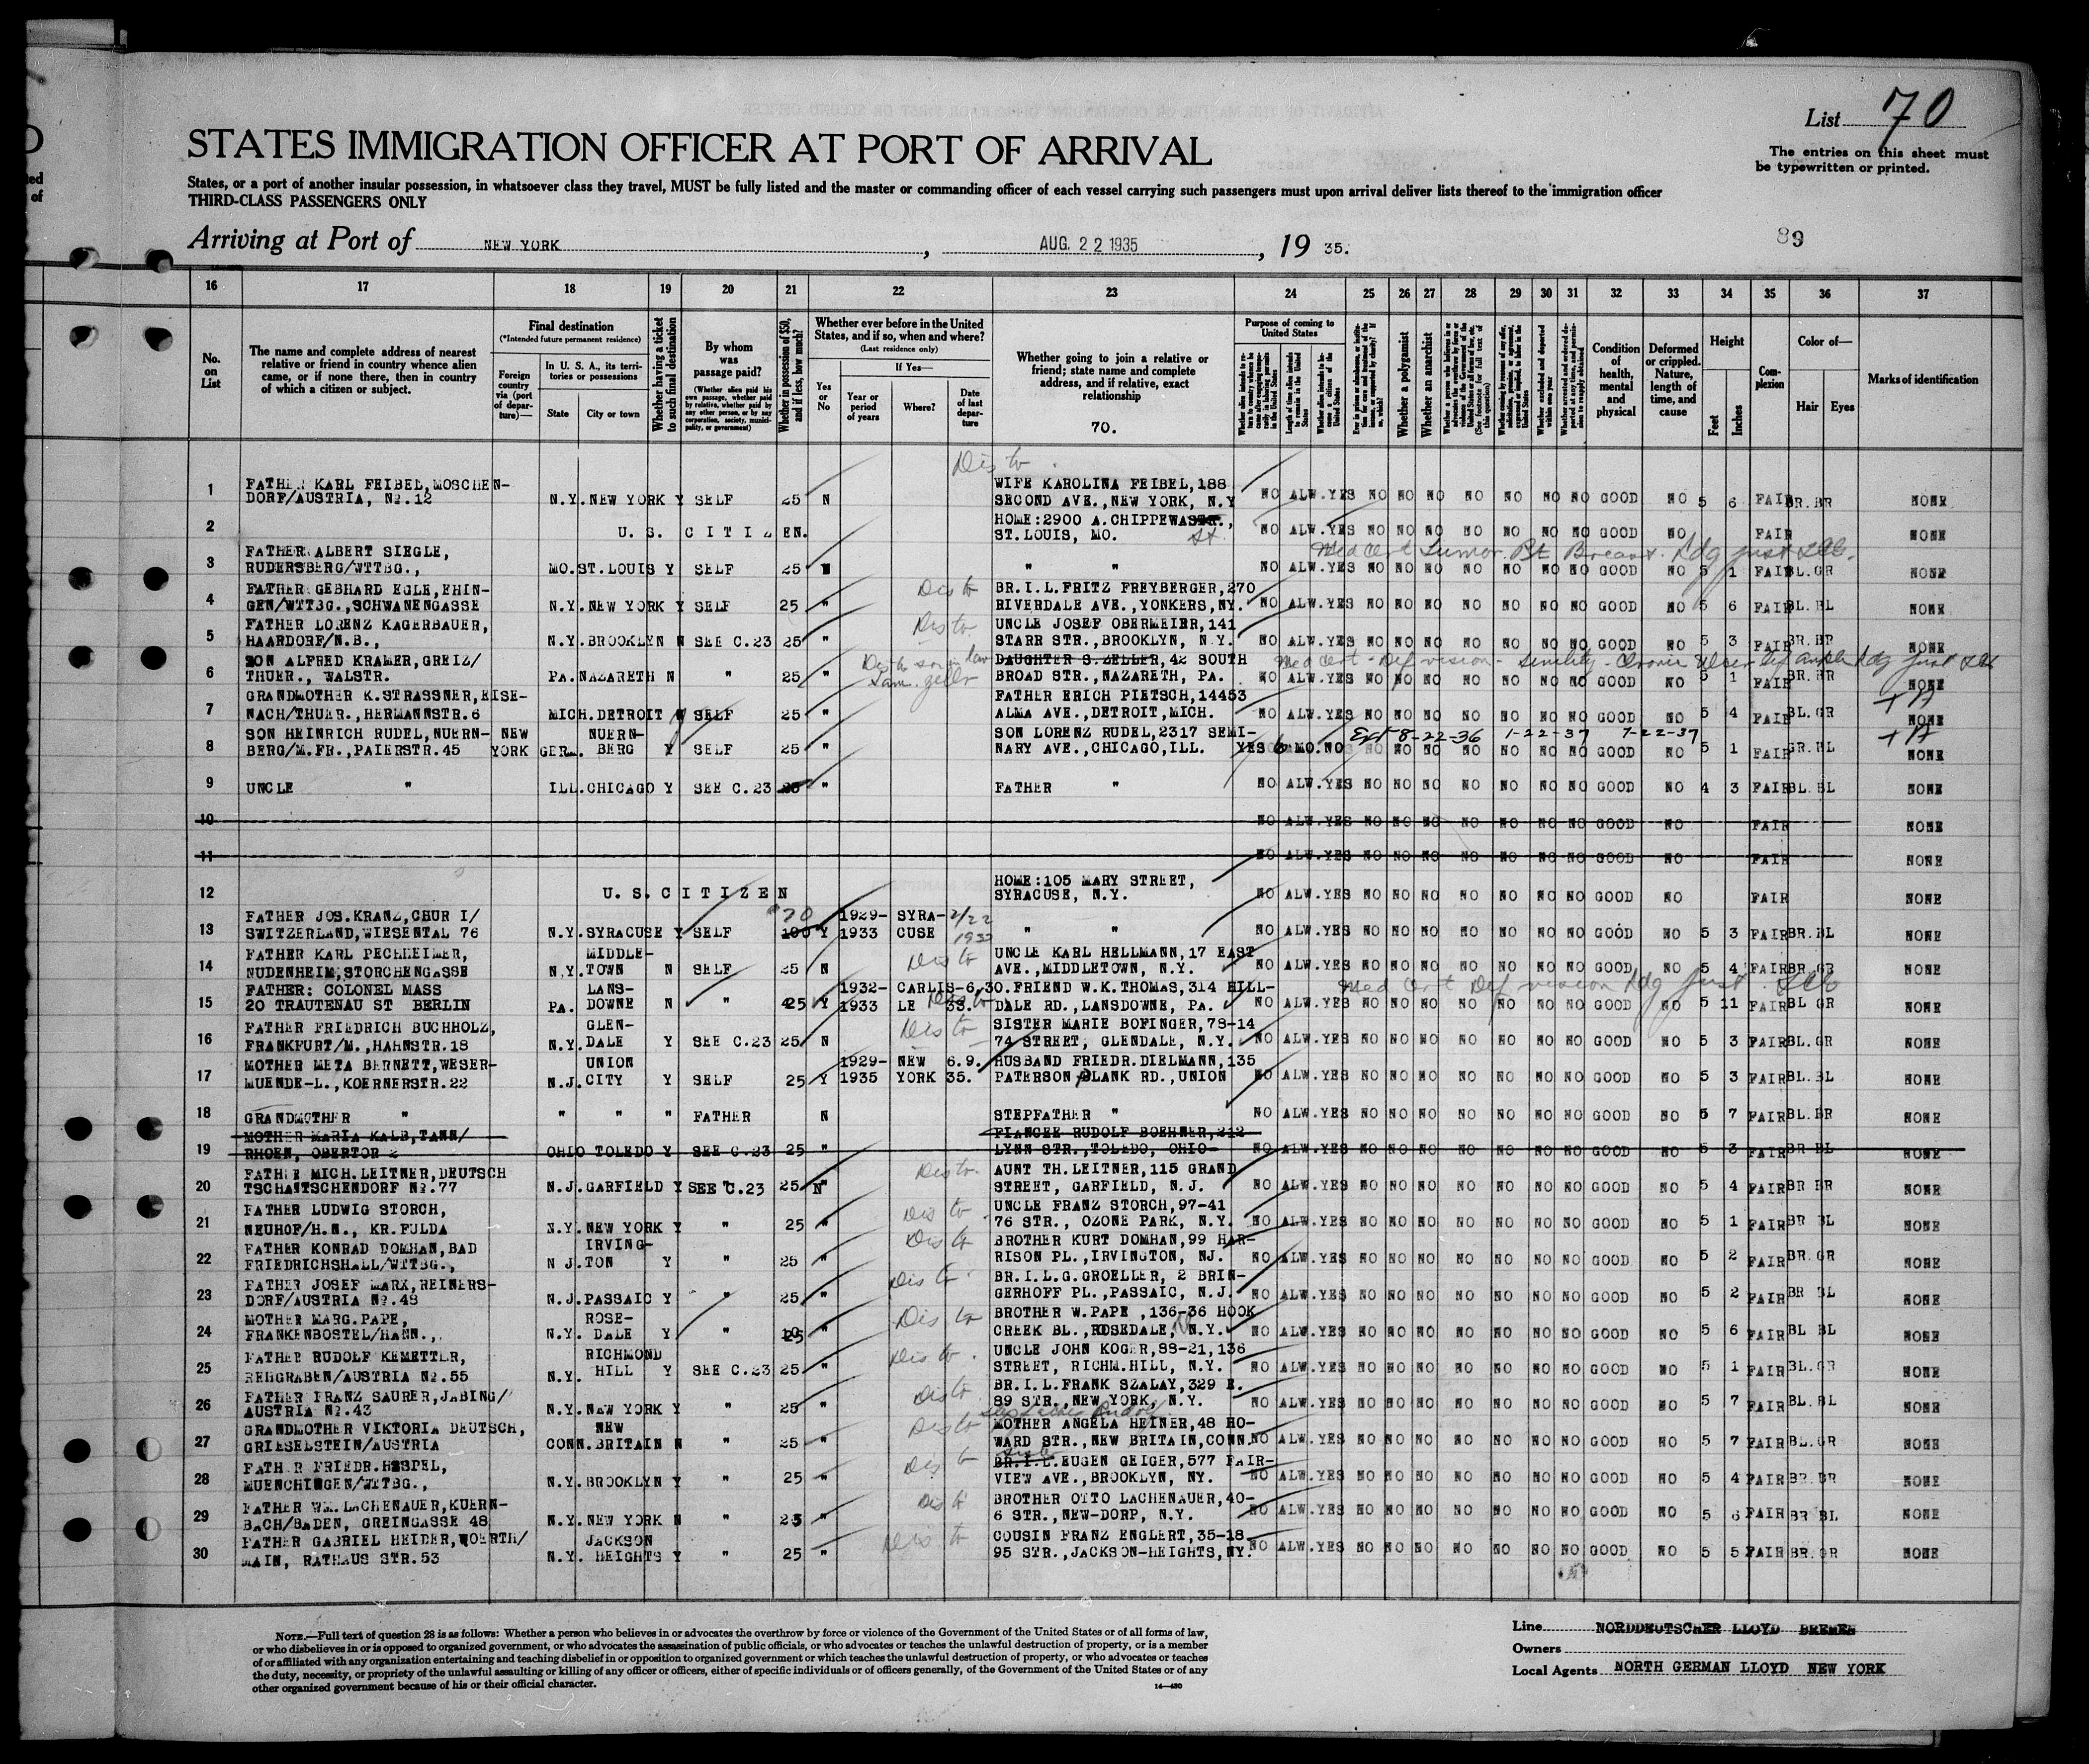 List 70
STATES IMMIGRATION OFFICER AT PORT OF ARRIVAL
The entries on this sheet must
be typewritten or printed.
States, or a port of another insular possession, in whatsoever class they travel, MUST be fully listed and the master or commanding officer of each vessel carrying such passengers must upon arrival deliver lists thereof to the immigration officer
THIRD-CLASS PASSENGERS ONLY
Arriving at Port of NEW YORK, AUG. 22 1935, 19 35.
89
16 17 18 19 20 21 22 23 24 25 26 27 28 29 30 31 32 33 34 35 36 37
No. on List
The name and complete address of nearest
relative or friend in country whence alien
came, or if none there, then in country
of which a citizen or subject.
Final destination
(*Intended future permanent residence)
Foreign country via (port of departure)—
In U. S. A., its territories or possessions
State City or town
Whether having a ticket to such final destination
By whom was passage paid?
(Whether alien paid his own passage, whether paid by relative, whether paid by any other person, or by any corporation, society, municipality, or government)
Whether in possession of $50, and if less, how much?
Whether ever before in the United
States, and if so, when and where?
(Last residence only)
Yes or No
If Yes—
Year or period of years
Where?
Date of last departure
Whether going to join a relative or
friend; state name and complete
address, and if relative, exact
relationship
70.
Purpose of coming to United States
Whether a polygamist
Whether an anarchist
Condition of health, mental and physical
Deformed or crippled. Nature, length of time, and cause
Height
Feet Inches
Complexion
Color of—
Hair Eyes
Marks of identification
Dis to
1 FATHER KARL FEIBEL, MOSCHEN-
DORF/AUSTRIA, No.12 N.Y. NEW YORK Y SELF 25 N WIFE KAROLINA FEIBEL,188
SECOND AVE., NEW YORK, N.Y NO ALW. YES NO NO NO NO NO NO NO GOOD NO 5 6 FAIR BR. BR NONE
2 U. S. CITIZEN. HOME:2900 A. CHIPPEWA STR.,
St.
ST. LOUIS, MO. NO ALW. YES NO NO NO NO NO NO NO GOOD NO FAIR NONE
Med Cert Tumor Rt Breast
3 FATHER ALBERT SIEGLE,
RUDERSBERG/WTTBG., MO. ST.LOUIS Y SELF 25 " " NO ALW. YES NO NO NO NO NO NO NO GOOD NO 5 1 FAIR BL. GR NONE
4 FATHER GEBHARD EGLE, EHIN-
GEN/WTTBG., SCHWANENGASSE N.Y. NEW YORK Y SELF 25 " Dis to BR.I.L. FRITZ FREYBERGER, 270
RIVERDALE AVE., YONKERS, NY. NO ALW. YES NO NO NO NO NO NO NO GOOD NO 5 6 FAIR BL. BL NONE
5 FATHER LORENZ KAGERBAUER,
HAARDORF/N.B., N.Y. BROOKLYN N SEE C.23 25 " Dis to UNCLE JOSEF OBERMEIER, 141
STARR STR., BROOKLYN, N.Y. NO ALW. YES NO NO NO NO NO NO NO GOOD NO 5 3 FAIR BR. BR NONE
6 SON ALFRED KRAMER, GREIZ/
THUER., WALSTR. PA. NAZARETH N " 25 " Dis to son in law DAUGHTER S. ZELLER, 42 SOUTH
BROAD STR., NAZARETH, PA. NO ALW. YES NO NO NO NO NO NO NO GOOD NO 5 1 FAIR BR. BR NONE
Med Cert - Def vision - Senility - Chronic Ulcer lef ankle
7 GRANDMOTHER K. STRASSNER, EISE-
NACH/THUER., HERMANNSTR. 6 MICH. DETROIT SELF 25 " FATHER ERICH PIETSCH, 14453
ALMA AVE., DETROIT, MICH. NO ALW. YES NO NO NO NO NO NO NO GOOD NO 5 4 FAIR BL. GR NONE
8 SON HEINRICH RUDEL, NUERN-
BERG/M.FR., PAIERSTR. 45 NEW YORK GER. NUERN- BERG Y SELF 25 " SON LORENZ RUDEL, 2317 SEMI-
NARY AVE., CHICAGO, ILL. YES 6 MO. NO NO NO NO NO NO NO NO GOOD NO 5 1 FAIR GR. BL NONE
Ext 8-22-36 1-22-37 7-22-37
9 UNCLE " ILL. CHICAGO Y SEE C.23 25 " FATHER " NO ALW. YES NO NO NO NO NO NO NO GOOD NO 4 3 FAIR BL. BL NONE
10 NO ALW. YES NO NO NO NO NO NO NO GOOD NO FAIR NONE
11 NO ALW. YES NO NO NO NO NO NO NO GOOD NO FAIR NONE
12 U. S. CITIZEN HOME:105 MARY STREET,
SYRACUSE, N.Y. NO ALW. YES NO NO NO NO NO NO NO GOOD NO FAIR NONE
13 FATHER JOS. KRANZ, CHUR I/
SWITZERLAND, WIESENTAL 76 N.Y. SYRACUSE Y SELF 100 70 Y 1929-1933 SYRACUSE 2/22 1933 " " NO ALW. YES NO NO NO NO NO NO NO GOOD NO 5 3 FAIR BR. BL NONE
14 FATHER KARL PECHHEIMER,
NUDENHEIM, STORCHENGASSE N.Y. MIDDLE- TOWN N SELF 25 N Dis to UNCLE KARL HELLMANN, 17 EAST
AVE., MIDDLETOWN, N.Y. NO ALW. YES NO NO NO NO NO NO NO GOOD NO 5 4 FAIR BR. GR NONE
Med Cert Def vision
15 FATHER: COLONEL MASS
20 TRAUTENAU ST BERLIN PA. LANS- DOWNE N " 25 Y 1932-1933 CARLISLE 6,30. 33. FRIEND W.K. THOMAS, 314 HILL-
DALE RD., LANSDOWNE, PA. NO ALW. YES NO NO NO NO NO NO NO GOOD NO 5 11 FAIR BL GR NONE
16 FATHER FRIEDRICH BUCHHOLZ,
FRANKFURT/M., HAHNSTR. 18 N.Y. GLEN- DALE Y SEE C.23 25 N Dis to SISTER MARIE BOFINGER, 78-14
74 STREET, GLENDALE, N.Y. NO ALW. YES NO NO NO NO NO NO NO GOOD NO 5 3 FAIR BL. GR NONE
17 MOTHER META BERNETT, WESER-
MUENDE-L., KOERNERSTR. 22 N.J. UNION CITY Y SELF 25 Y 1929-1935 NEW YORK 6.9. 35. HUSBAND FRIEDR. DIELMANN, 135
PATERSON PLANK RD., UNION NO ALW. YES NO NO NO NO NO NO NO GOOD NO 5 3 FAIR BL. BL NONE
18 GRANDMOTHER " " " " FATHER N STEPFATHER " NO ALW. YES NO NO NO NO NO NO NO GOOD NO 5 7 FAIR BL. BR NONE
19 MOTHER MARIA KALB, TANN/
RHOEN, OBERTOR 2 OHIO TOLEDO Y SEE C.23 25 " FIANCEE RUDOLF BOEHNER, 212
LYNN STR., TOLEDO, OHIO NO ALW. YES NO NO NO NO NO NO NO GOOD NO 5 3 FAIR BR BL NONE
20 FATHER MICH. LEITNER, DEUTSCH
TSCHANTSCHENDORF No. 77 N.J. GARFIELD Y SEE C.23 25 N Dis to AUNT TH. LEITNER, 115 GRAND
STREET, GARFIELD, N.J. NO ALW. YES NO NO NO NO NO NO NO GOOD NO 5 4 FAIR BR BR NONE
21 FATHER LUDWIG STORCH,
NEUHOF/H.N., KR. FULDA N.Y. NEW YORK Y " 25 " Dis to UNCLE FRANZ STORCH, 97-41
76 STR., OZONE PARK, N.Y. NO ALW. YES NO NO NO NO NO NO NO GOOD NO 5 1 FAIR BR BL NONE
22 FATHER KONRAD DOMHAN, BAD
FRIEDRICHSHALL/WTTBG., N J. IRVING- TON Y " 25 " Dis to BROTHER KURT DOMHAN, 99 HAR-
RISON PL., IRVINGTON, NJ. NO ALW. YES NO NO NO NO NO NO NO GOOD NO 5 2 FAIR BR. GR NONE
23 FATHER JOSEF MARX, REINERS-
DORF/AUSTRIA No. 48 N.J. PASSAIC Y " 25 " Dis to BR.I.L. G. GROELLER, 2 BRIN-
GERHOFF PL., PASSAIC, N.J. NO ALW. YES NO NO NO NO NO NO NO GOOD NO 5 2 FAIR BR BL NONE
24 MOTHER MARG. PAPE,
FRANKENBOSTEL/HANN., N.Y. ROSE- DALE Y " 25 " Dis to BROTHER W. PAPE, 136-36 HOOK
CREEK BL., ROSEDALE, N.Y. NO ALW. YES NO NO NO NO NO NO NO GOOD NO 5 6 FAIR BL BL NONE
25 FATHER RUDOLF KEMETTER,
REHGRABEN/AUSTRIA No. 55 N.Y. RICHMOND HILL Y SEE C.23 25 " Dis to UNCLE JOHN KOGER, 88-21, 136
STREET, RICHM. HILL, N.Y. NO ALW. YES NO NO NO NO NO NO NO GOOD NO 5 1 FAIR BL. GR NONE
26 FATHER FRANZ SAURER, JABING/
AUSTRIA No. 43 N.Y. NEW YORK Y " 25 " Dis to BR.I.L. FRANK SZALAY, 329 E.
89 STR., NEW YORK, N.Y. NO ALW. YES NO NO NO NO NO NO NO GOOD NO 5 7 FAIR BL. BL NONE
27 GRANDMOTHER VIKTORIA DEUTSCH,
GRIESELSTEIN/AUSTRIA CONN. NEW BRITAIN N " 25 " Dis to stepfather Rudolf MOTHER ANGELA HEINER, 48 HO-
WARD STR., NEW BRITAIN, CONN. NO ALW. YES NO NO NO NO NO NO NO GOOD NO 5 7 FAIR BL. GR NONE
28 FATHER FRIEDR. HESPEL,
MUENCHINGEN/WTTBG., N.Y. BROOKLYN Y " 25 " Dis to BR.I.L. EUGEN GEIGER, 577 FAIR-
VIEW AVE., BROOKLYN, NY. NO ALW. YES NO NO NO NO NO NO NO GOOD NO 5 4 FAIR BR. BR NONE
29 FATHER WM. LACHENAUER, KUERN-
BACH/BADEN, GREINGASSE 48 N.Y. NEW YORK N " 25 " Dis to BROTHER OTTO LACHENAUER, 40-
6 STR., NEW-DORP, N.Y. NO ALW. YES NO NO NO NO NO NO NO GOOD NO 5 6 FAIR BR BL NONE
30 FATHER GABRIEL HEIDER, WOERTH/
MAIN, RATHAUS STR. 53 N.Y. JACKSON HEIGHTS Y " 25 " Dis to COUSIN FRANZ ENGLERT, 35-18
95 STR., JACKSON-HEIGHTS, NY. NO ALW. YES NO NO NO NO NO NO NO GOOD NO 5 5 FAIR BR. GR NONE
NOTE.—Full text of question 28 is as follows: Whether a person who believes in or advocates the overthrow by force or violence of the Government of the United States or of all forms of law,
or who disbelieves in or is opposed to organized government, or who advocates the assassination of public officials, or who advocates or teaches the unlawful destruction of property, or is a member
of or affiliated with any organization entertaining and teaching disbelief in or opposition to organized government or which teaches the unlawful destruction of property, or who advocates or teaches
the duty, necessity, or propriety of the unlawful assaulting or killing of any officer or officers, either of specific individuals or of officers generally, of the Government of the United States or of any
other organized government because of his or their official character.
14—430
Line NORDDEUTSCHER LLOYD BREMEN
Owners
Local Agents NORTH GERMAN LLOYD NEW YORK